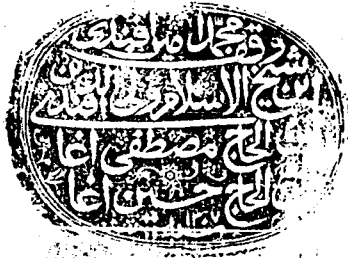 وقف محمد امين افندي
بن شيخ الاسلام ولي الدين افندي
بن الحاج مصطفى اغا
بن الحاج حسين اغا